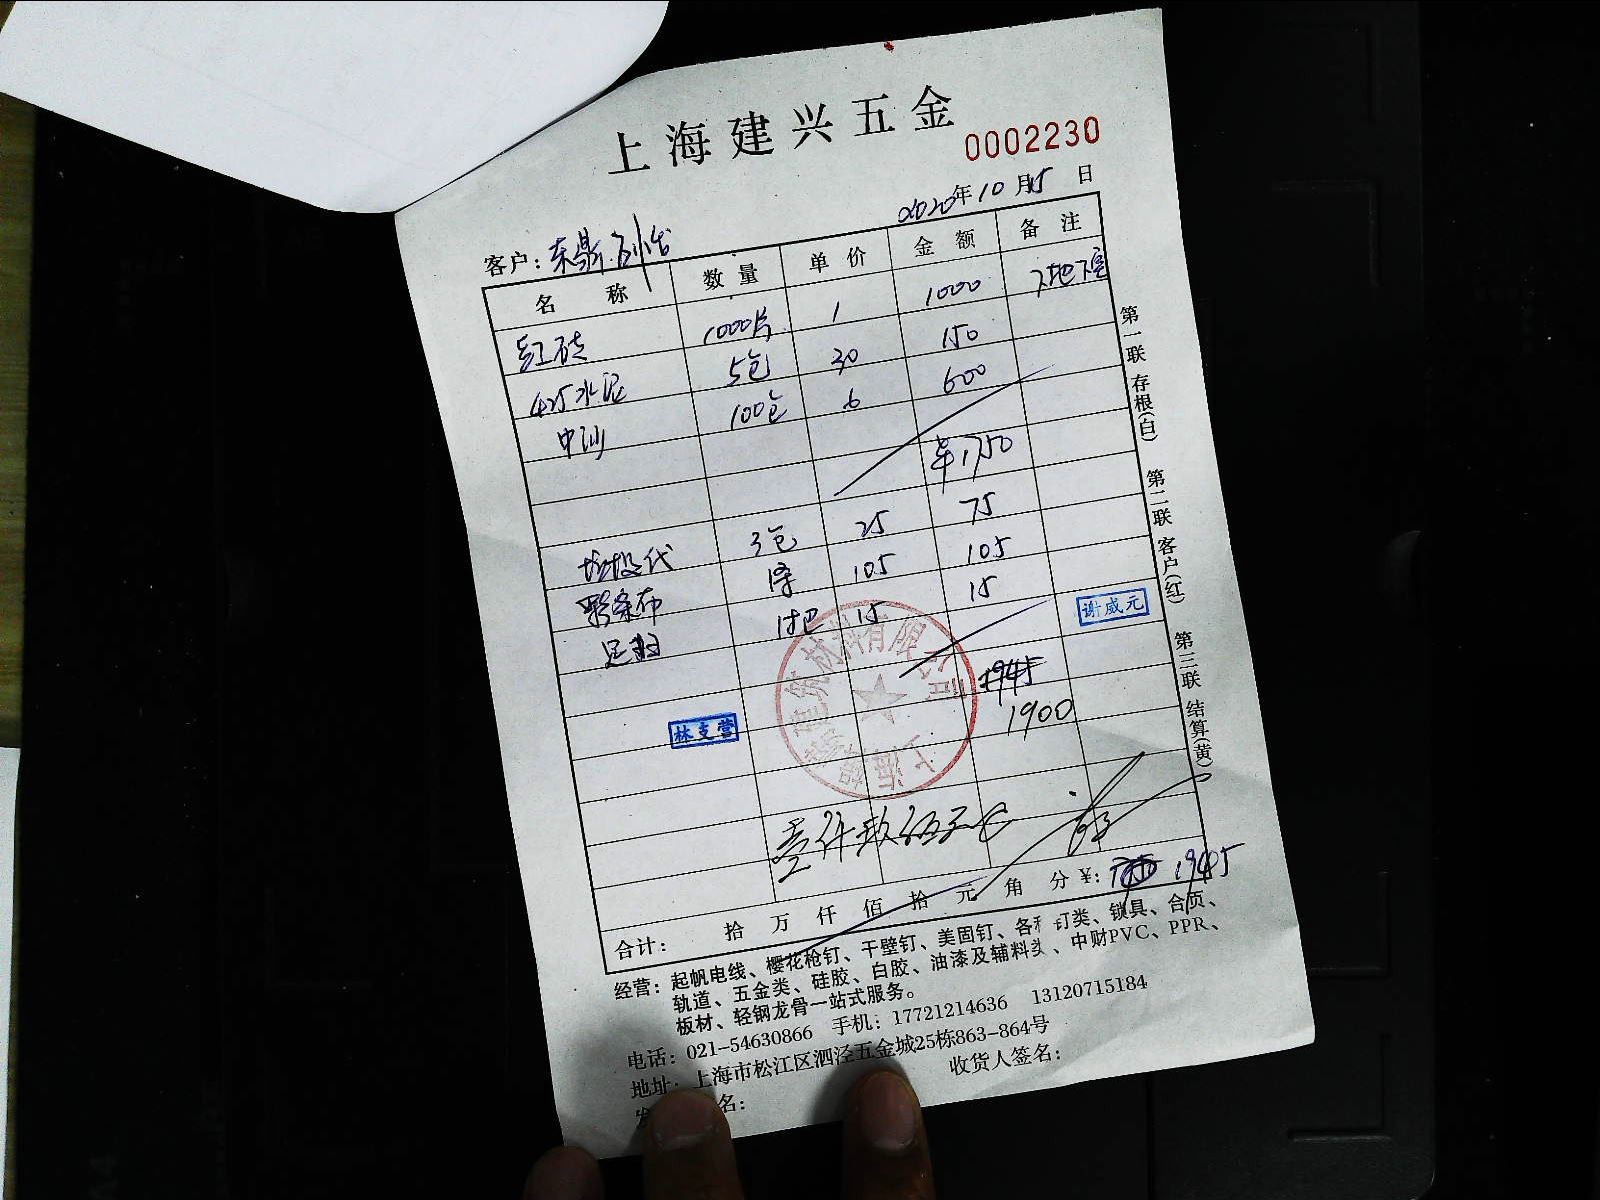 上海建兴五金
0002230
2020年10月15日
客户：东鼎
名称 数量 单价 金额 备注
红砖 1000片 1 1000 入地下室
425水泥 5包 30 150
中沙 100包 6 600
¥1750
垃圾代 3包 25 75
彩条布 1条 105 105
1把 15 15
1945
1900
谢威元
林支营
上海 建筑材料有限公司
合计： 拾 万 仟 佰 拾 元 角 分 ¥： 1945
经营：起帆电线、樱花枪钉、干壁钉、美固钉、各种钉类、锁具、合页、
轨道、五金类、硅胶、白胶、油漆及辅料类、中财PVC、PPR、
板材、轻钢龙骨一站式服务。
电话：021-54630866 手机：17721214636 13120715184
地址：上海市松江区泗泾五金城25栋863-864号
发 名： 收货人签名：
第一联 存根(白) 第二联 客户(红) 第三联 结算(黄)